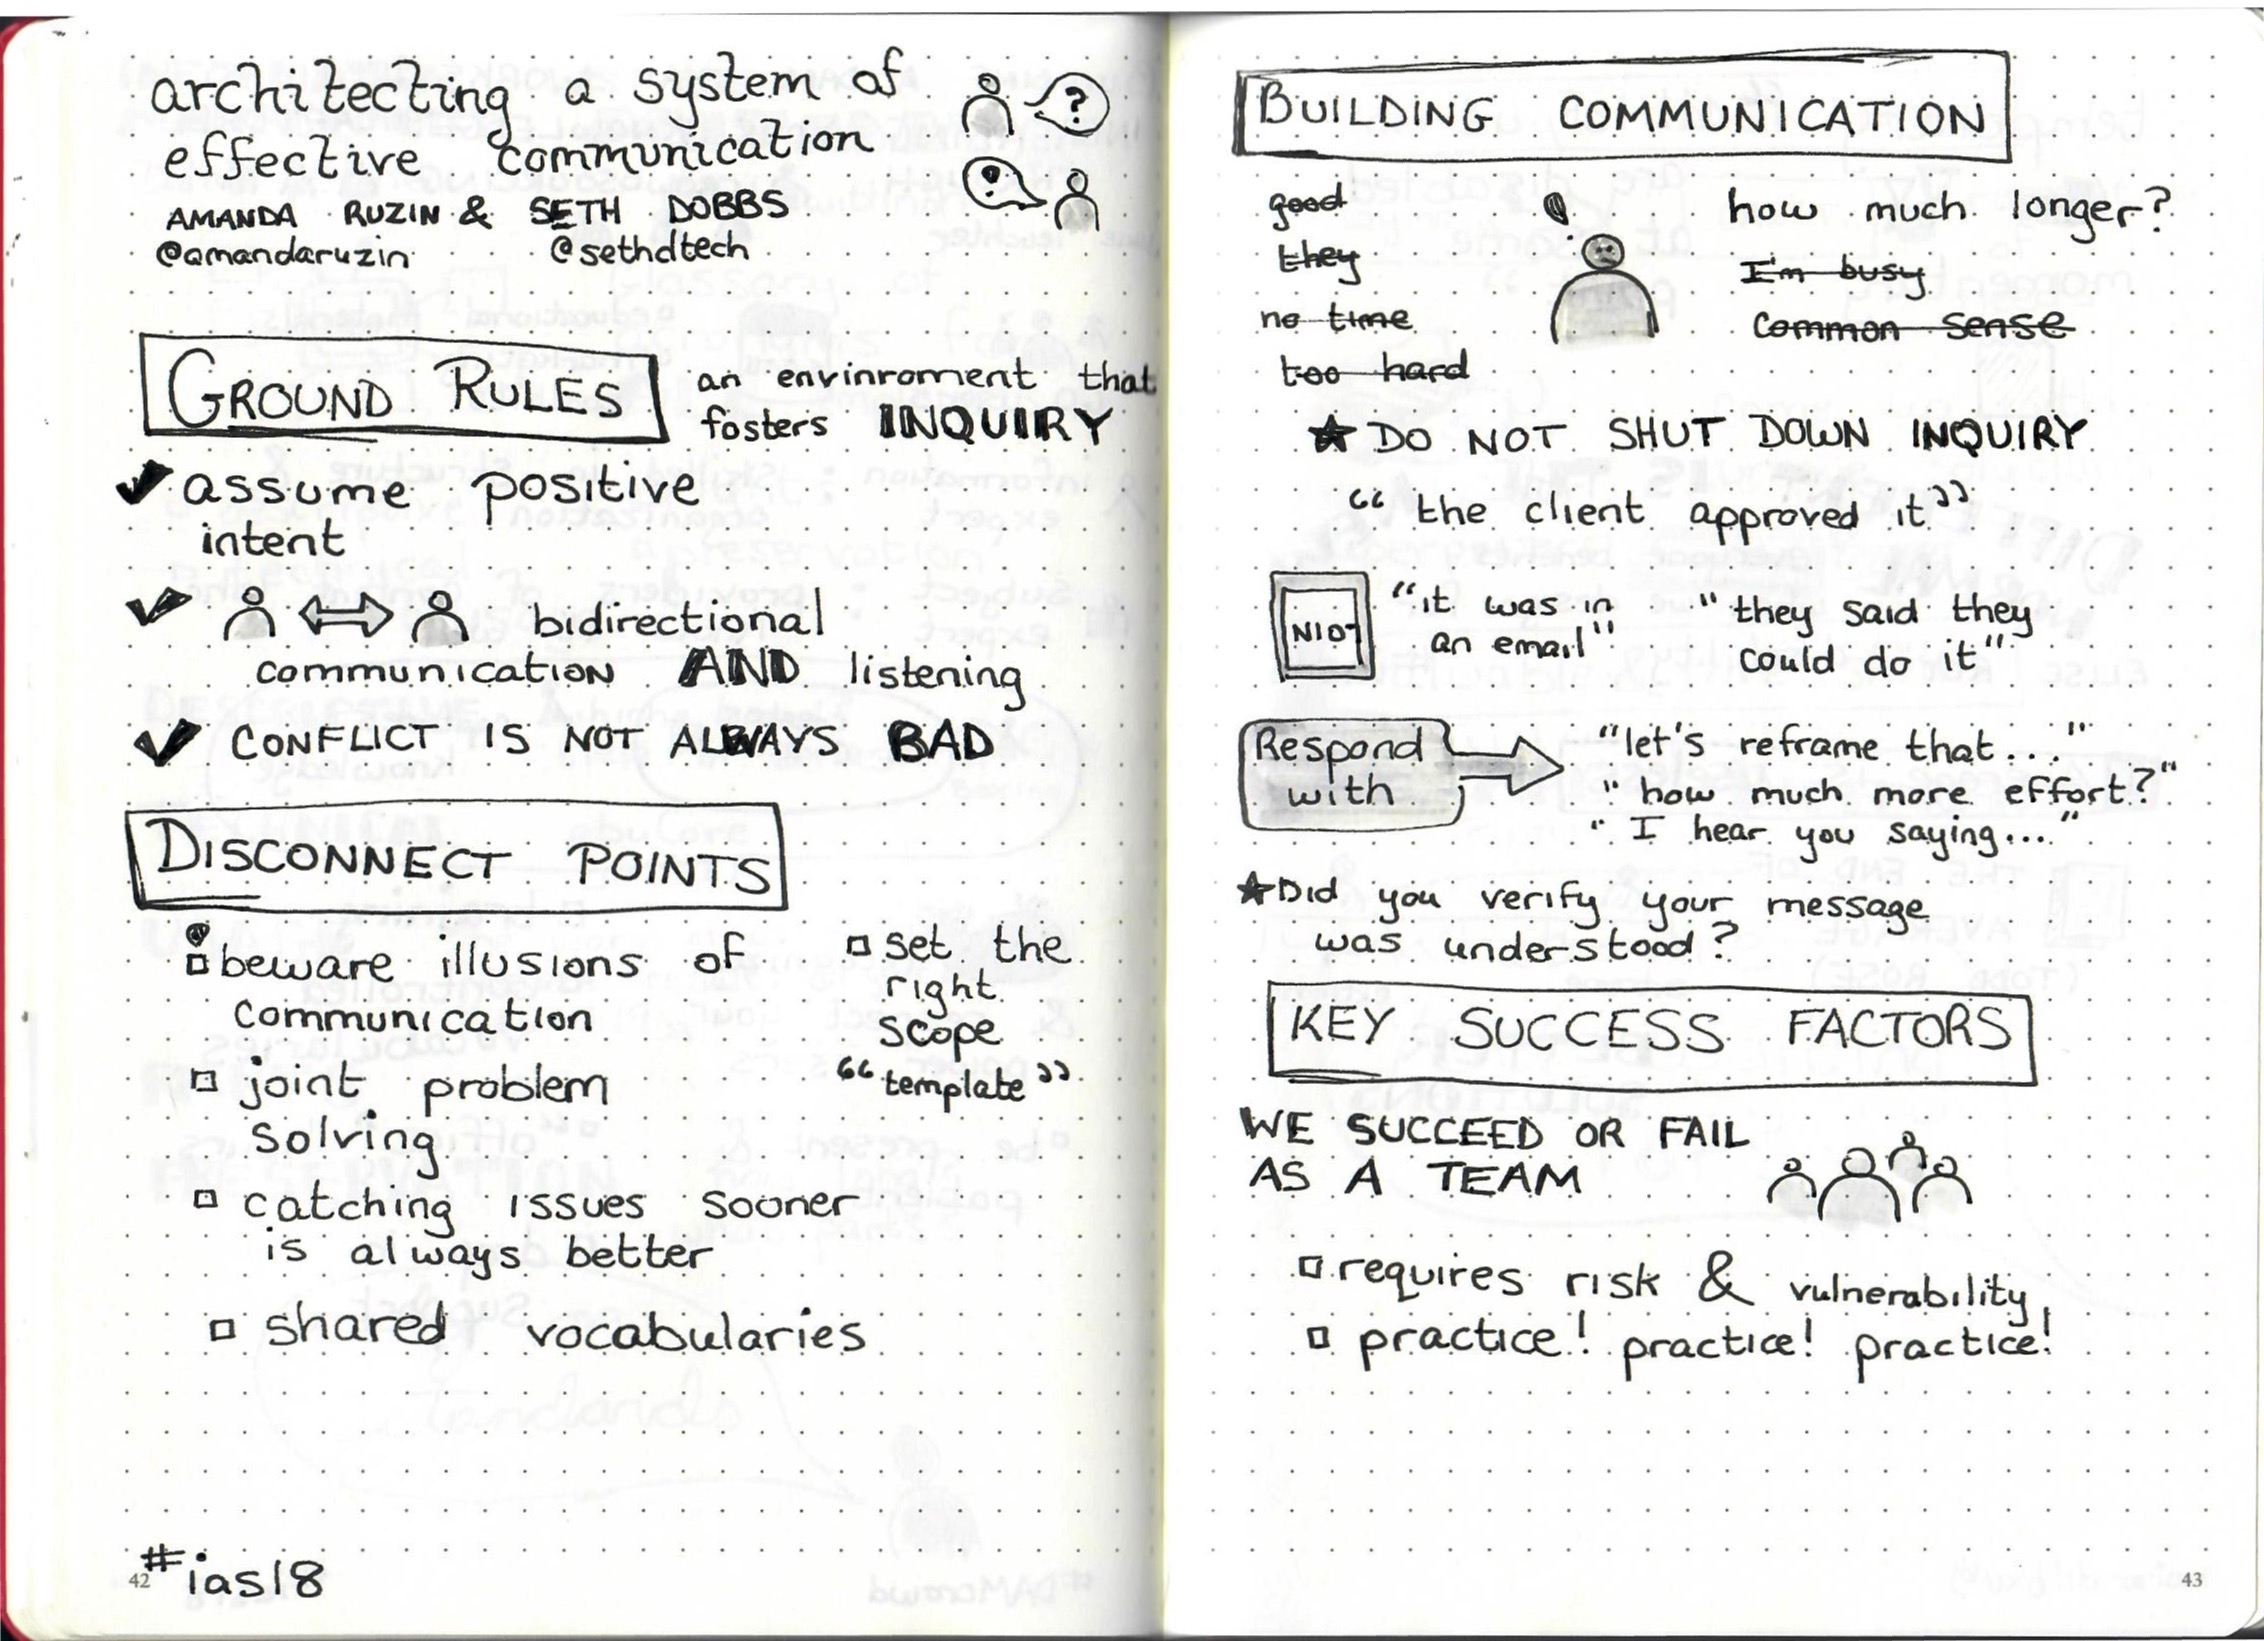 architecting a system of
effective communication
AMANDA RUZIN & SETH DOBBS
@amandaruzin @sethdtech
?
!
GROUND RULES
an envinroment that
fosters INQUIRY
assume positive
intent
bidirectional
communication AND listening
CONFLICT IS NOT ALWAYS BAD
DISCONNECT POINTS
beware illusions of
communication
joint problem
solving
catching issues sooner
is always better
shared vocabularies
set the
right
scope
"template"
#ias18
42
BUILDING COMMUNICATION
good
they
no time
too hard
how much longer?
I'm busy
common sense
DO NOT SHUT DOWN INQUIRY
"the client approved it"
"it was in
an email"
"they said they
could do it"
Respond
with
"let's reframe that..."
"how much more effort?"
"I hear you saying..."
Did you verify your message
was understood?
KEY SUCCESS FACTORS
WE SUCCEED OR FAIL
AS A TEAM
requires risk & vulnerability
practice! practice! practice!
43